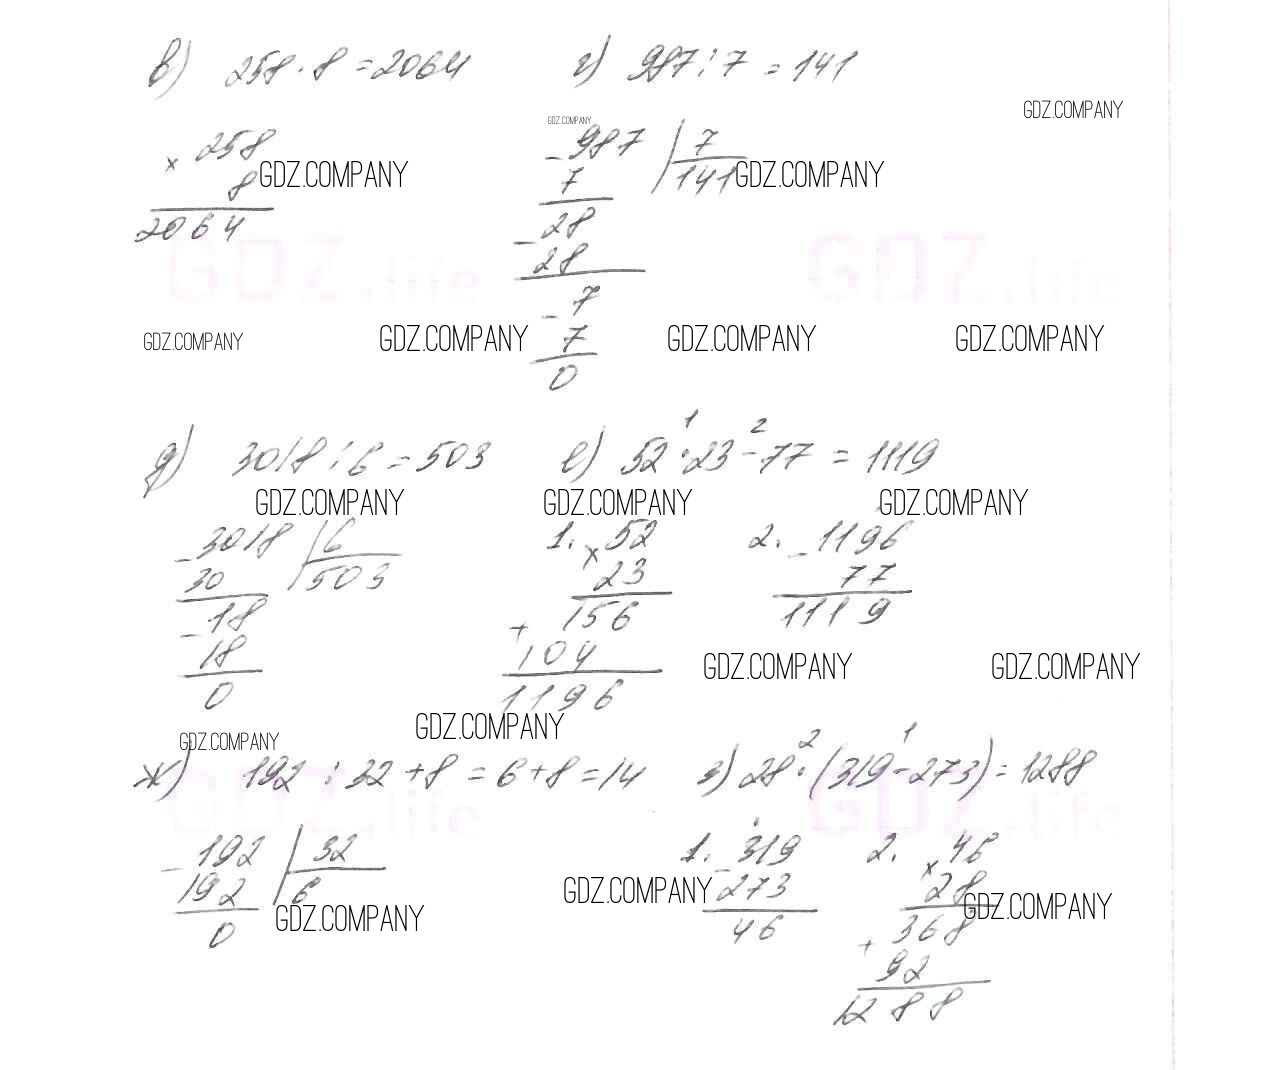 в) 258 · 8 = 2064   г) 987 : 7 = 141
GDZ.COMPANY
GDZ.COMPANY
× 258   − 987 | 7
8 GDZ.COMPANY   7   141 GDZ.COMPANY
2064   − 28
GDZ.life   28   GDZ.life
− 7
GDZ.COMPANY   GDZ.COMPANY   7   GDZ.COMPANY   GDZ.COMPANY
0
1   2
д) 3018 : 6 = 503   е) 52 · 23 − 77 = 1119
GDZ.COMPANY   GDZ.COMPANY   GDZ.COMPANY
− 3018 | 6   1. × 52   2. − 1196
30   503   23   77
− 18   + 156   1119
18   104   GDZ.COMPANY   GDZ.COMPANY
0   1196
GDZ.COMPANY
GDZ.COMPANY   2   1
ж) 192 : 32 + 8 = 6 + 8 = 14   з) 28 · (319 − 273) = 1288
GDZ.life   GDZ.life
− 192 | 32   1. − 319   2. × 46
192   6   GDZ.COMPANY   273   28
0   GDZ.COMPANY   46   + 368   GDZ.COMPANY
92
1288